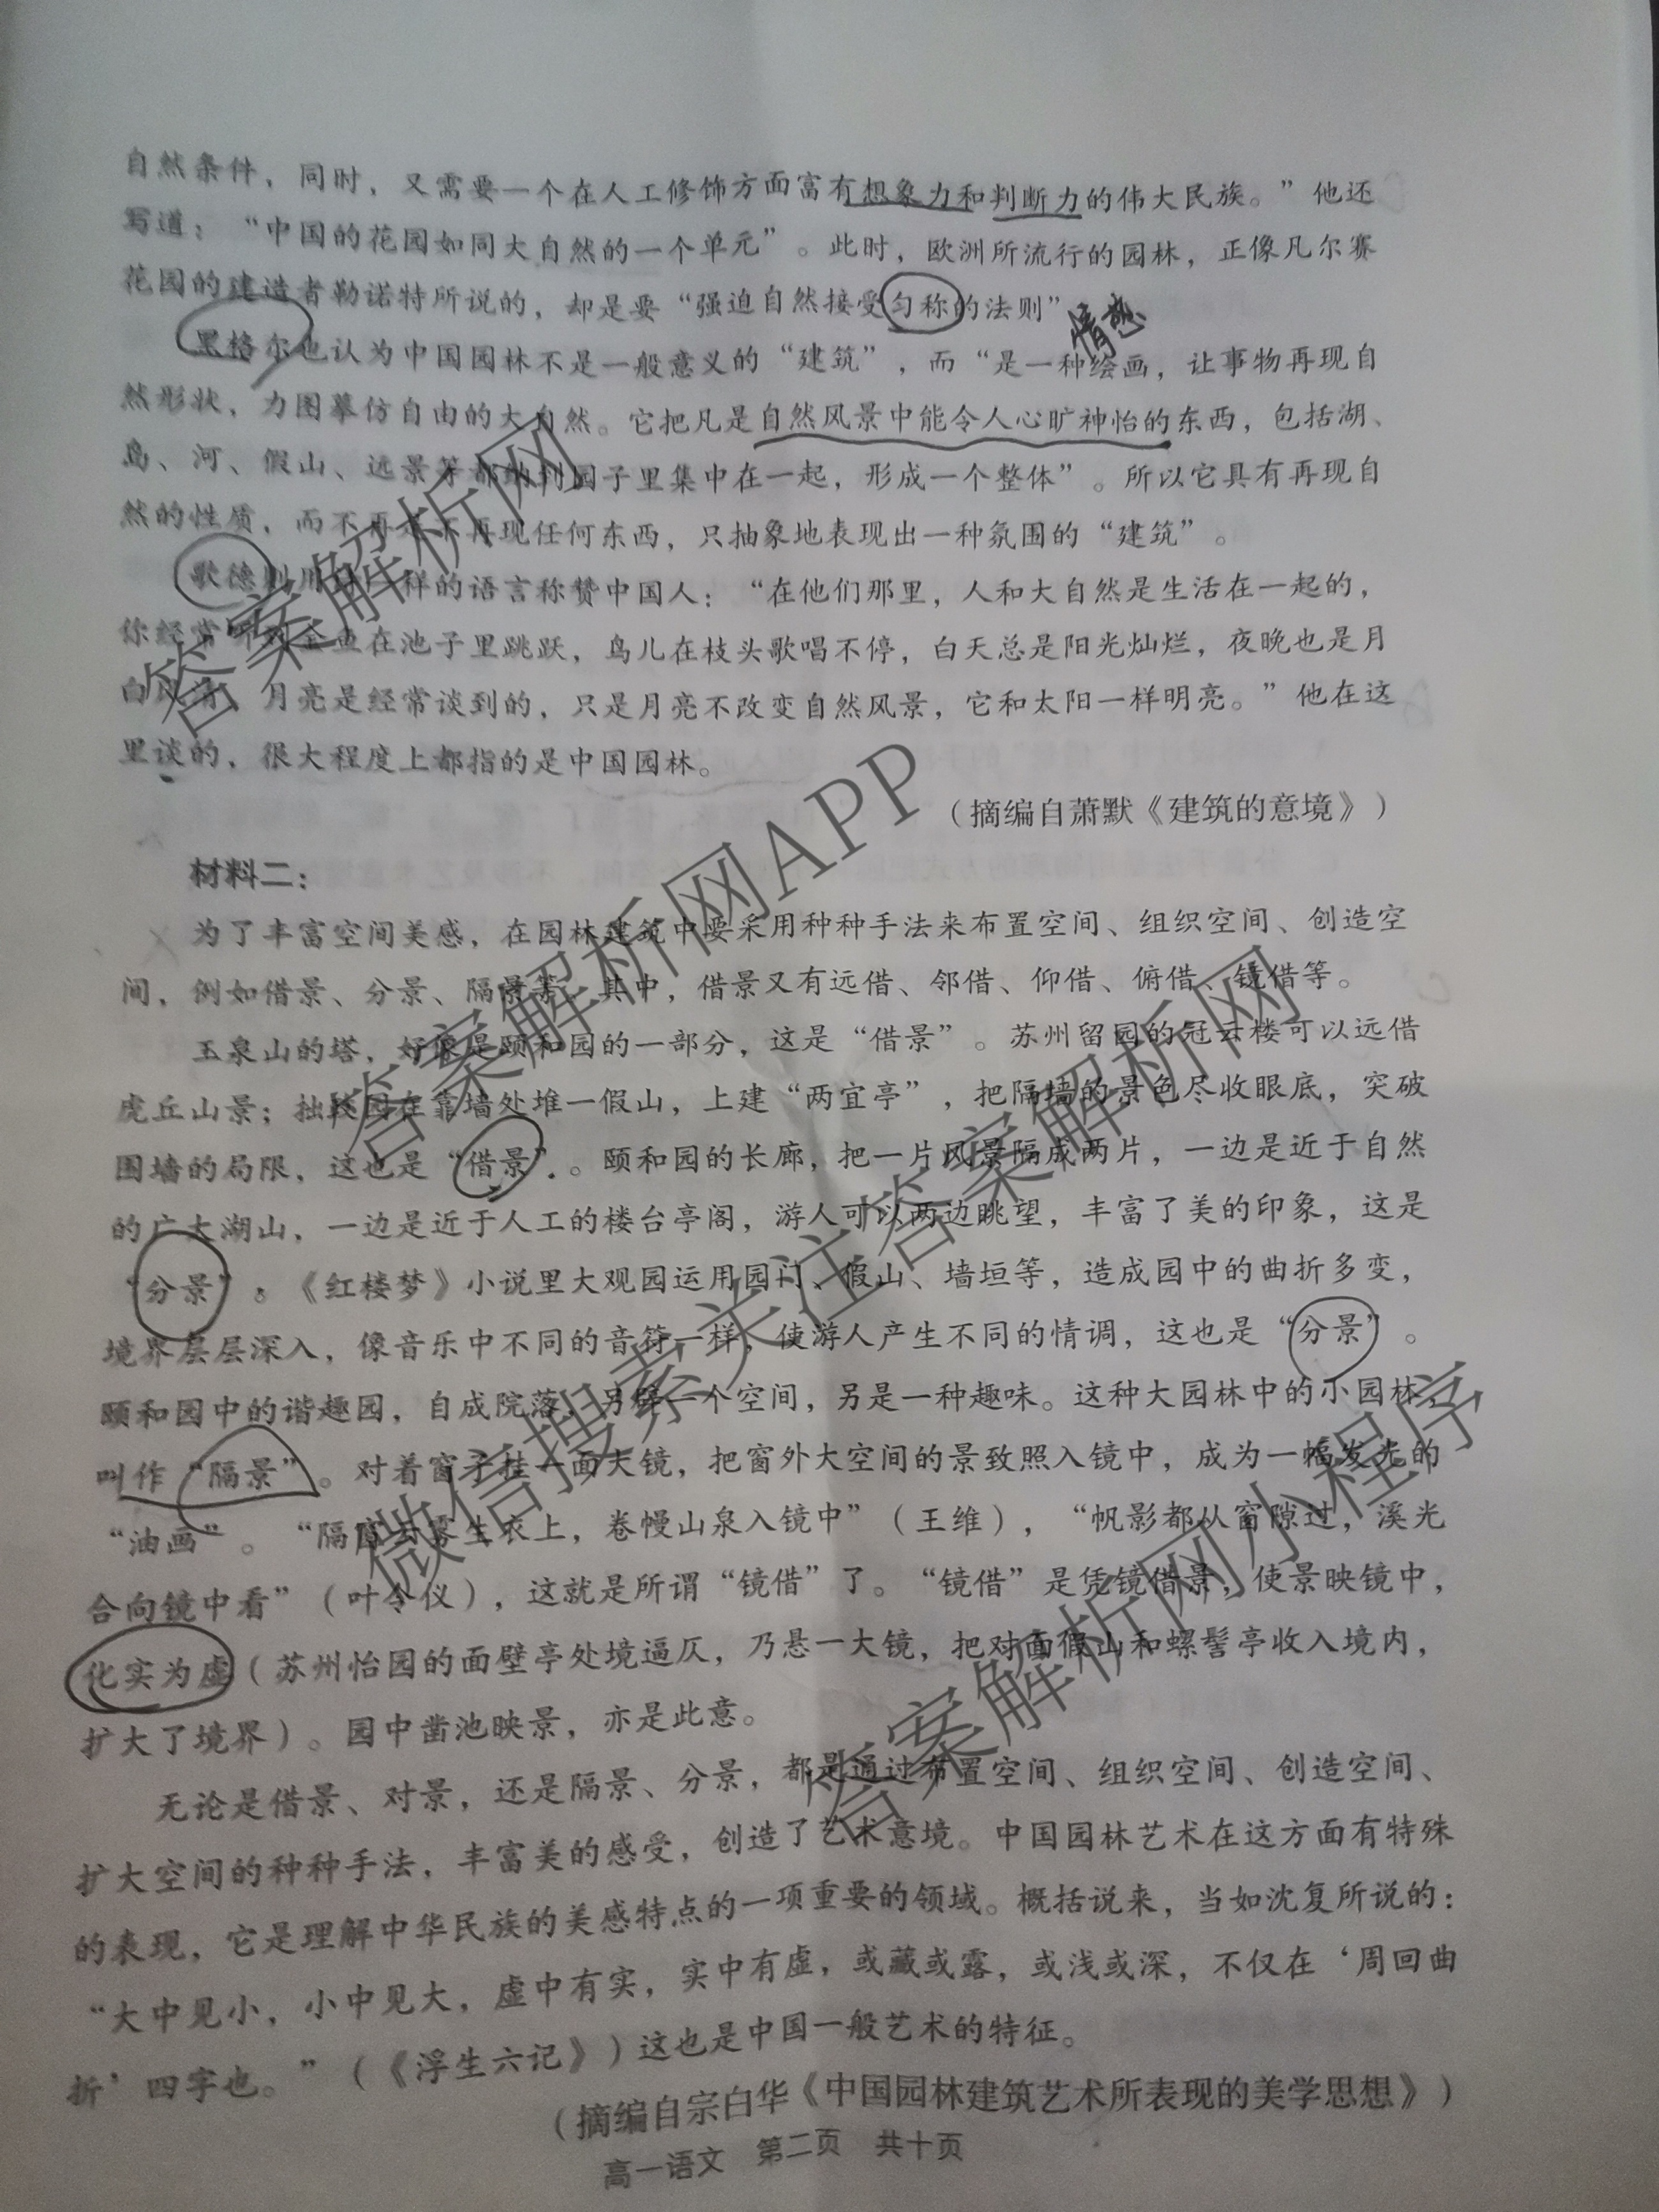 自然条件，同时，又需要一个在人工修饰方面富有想象力和判断力的伟大民族。”他还
写道：“中国的花园如同大自然的一个单元”。此时，欧洲所流行的园林，正像凡尔赛
花园的建造者勒诺特所说的，却是要“强迫自然接受匀称的法则”
情感
黑格尔也认为中国园林不是一般意义的“建筑”，而“是一种绘画，让事物再现自
然形状，力图摹仿自由的大自然。它把凡是自然风景中能令人心旷神怡的东西，包括湖、
岛、河、假山、远景等都纳到园子里集中在一起，形成一个整体”。所以它具有再现自
然的性质，而不再是不再现任何东西，只抽象地表现出一种氛围的“建筑”。
歌德则用 样的语言称赞中国人：“在他们那里，人和大自然是生活在一起的，
你经常 金鱼在池子里跳跃，鸟儿在枝头歌唱不停，白天总是阳光灿烂，夜晚也是月
白风清，月亮是经常谈到的，只是月亮不改变自然风景，它和太阳一样明亮。”他在这
里谈的，很大程度上都指的是中国园林。
（摘编自萧默《建筑的意境》）
材料二：
为了丰富空间美感，在园林建筑中要采用种种手法来布置空间、组织空间、创造空
间，例如借景、分景、隔景等。其中，借景又有远借、邻借、仰借、俯借、镜借等。
玉泉山的塔，好像是颐和园的一部分，这是“借景”。苏州留园的冠云楼可以远借
虎丘山景；拙政园在靠墙处堆一假山，上建“两宜亭”，把隔墙的景色尽收眼底，突破
围墙的局限，这也是“借景”。颐和园的长廊，把一片风景隔成两片，一边是近于自然
的广大湖山，一边是近于人工的楼台亭阁，游人可以两边眺望，丰富了美的印象，这是
“分景”。《红楼梦》小说里大观园运用园门、假山、墙垣等，造成园中的曲折多变，
境界层层深入，像音乐中不同的音符一样，使游人产生不同的情调，这也是“分景”。
颐和园中的谐趣园，自成院落，另辟一个空间，另是一种趣味。这种大园林中的小园林，
叫作“隔景”。对着窗子挂一面大镜，把窗外大空间的景致照入镜中，成为一幅发光的
“油画”。“隔窗云雾生衣上，卷幔山泉入镜中”（王维），“帆影都从窗隙过，溪光
合向镜中看”（叶令仪），这就是所谓“镜借”了。“镜借”是凭镜借景，使景映镜中，
化实为虚（苏州怡园的面壁亭处境逼仄，乃悬一大镜，把对面假山和螺髻亭收入境内，
扩大了境界）。园中凿池映景，亦是此意。
无论是借景、对景，还是隔景、分景，都是通过布置空间、组织空间、创造空间、
扩大空间的种种手法，丰富美的感受，创造了艺术意境。中国园林艺术在这方面有特殊
的表现，它是理解中华民族的美感特点的一项重要的领域。概括说来，当如沈复所说的：
“大中见小，小中见大，虚中有实，实中有虚，或藏或露，或浅或深，不仅在‘周回曲
折’四字也。”（《浮生六记》）这也是中国一般艺术的特征。
（摘编自宗白华《中国园林建筑艺术所表现的美学思想》）
高一语文 第二页 共十页
答案解析网
答案解析网APP
微信搜索关注答案解析网
答案解析网小程序